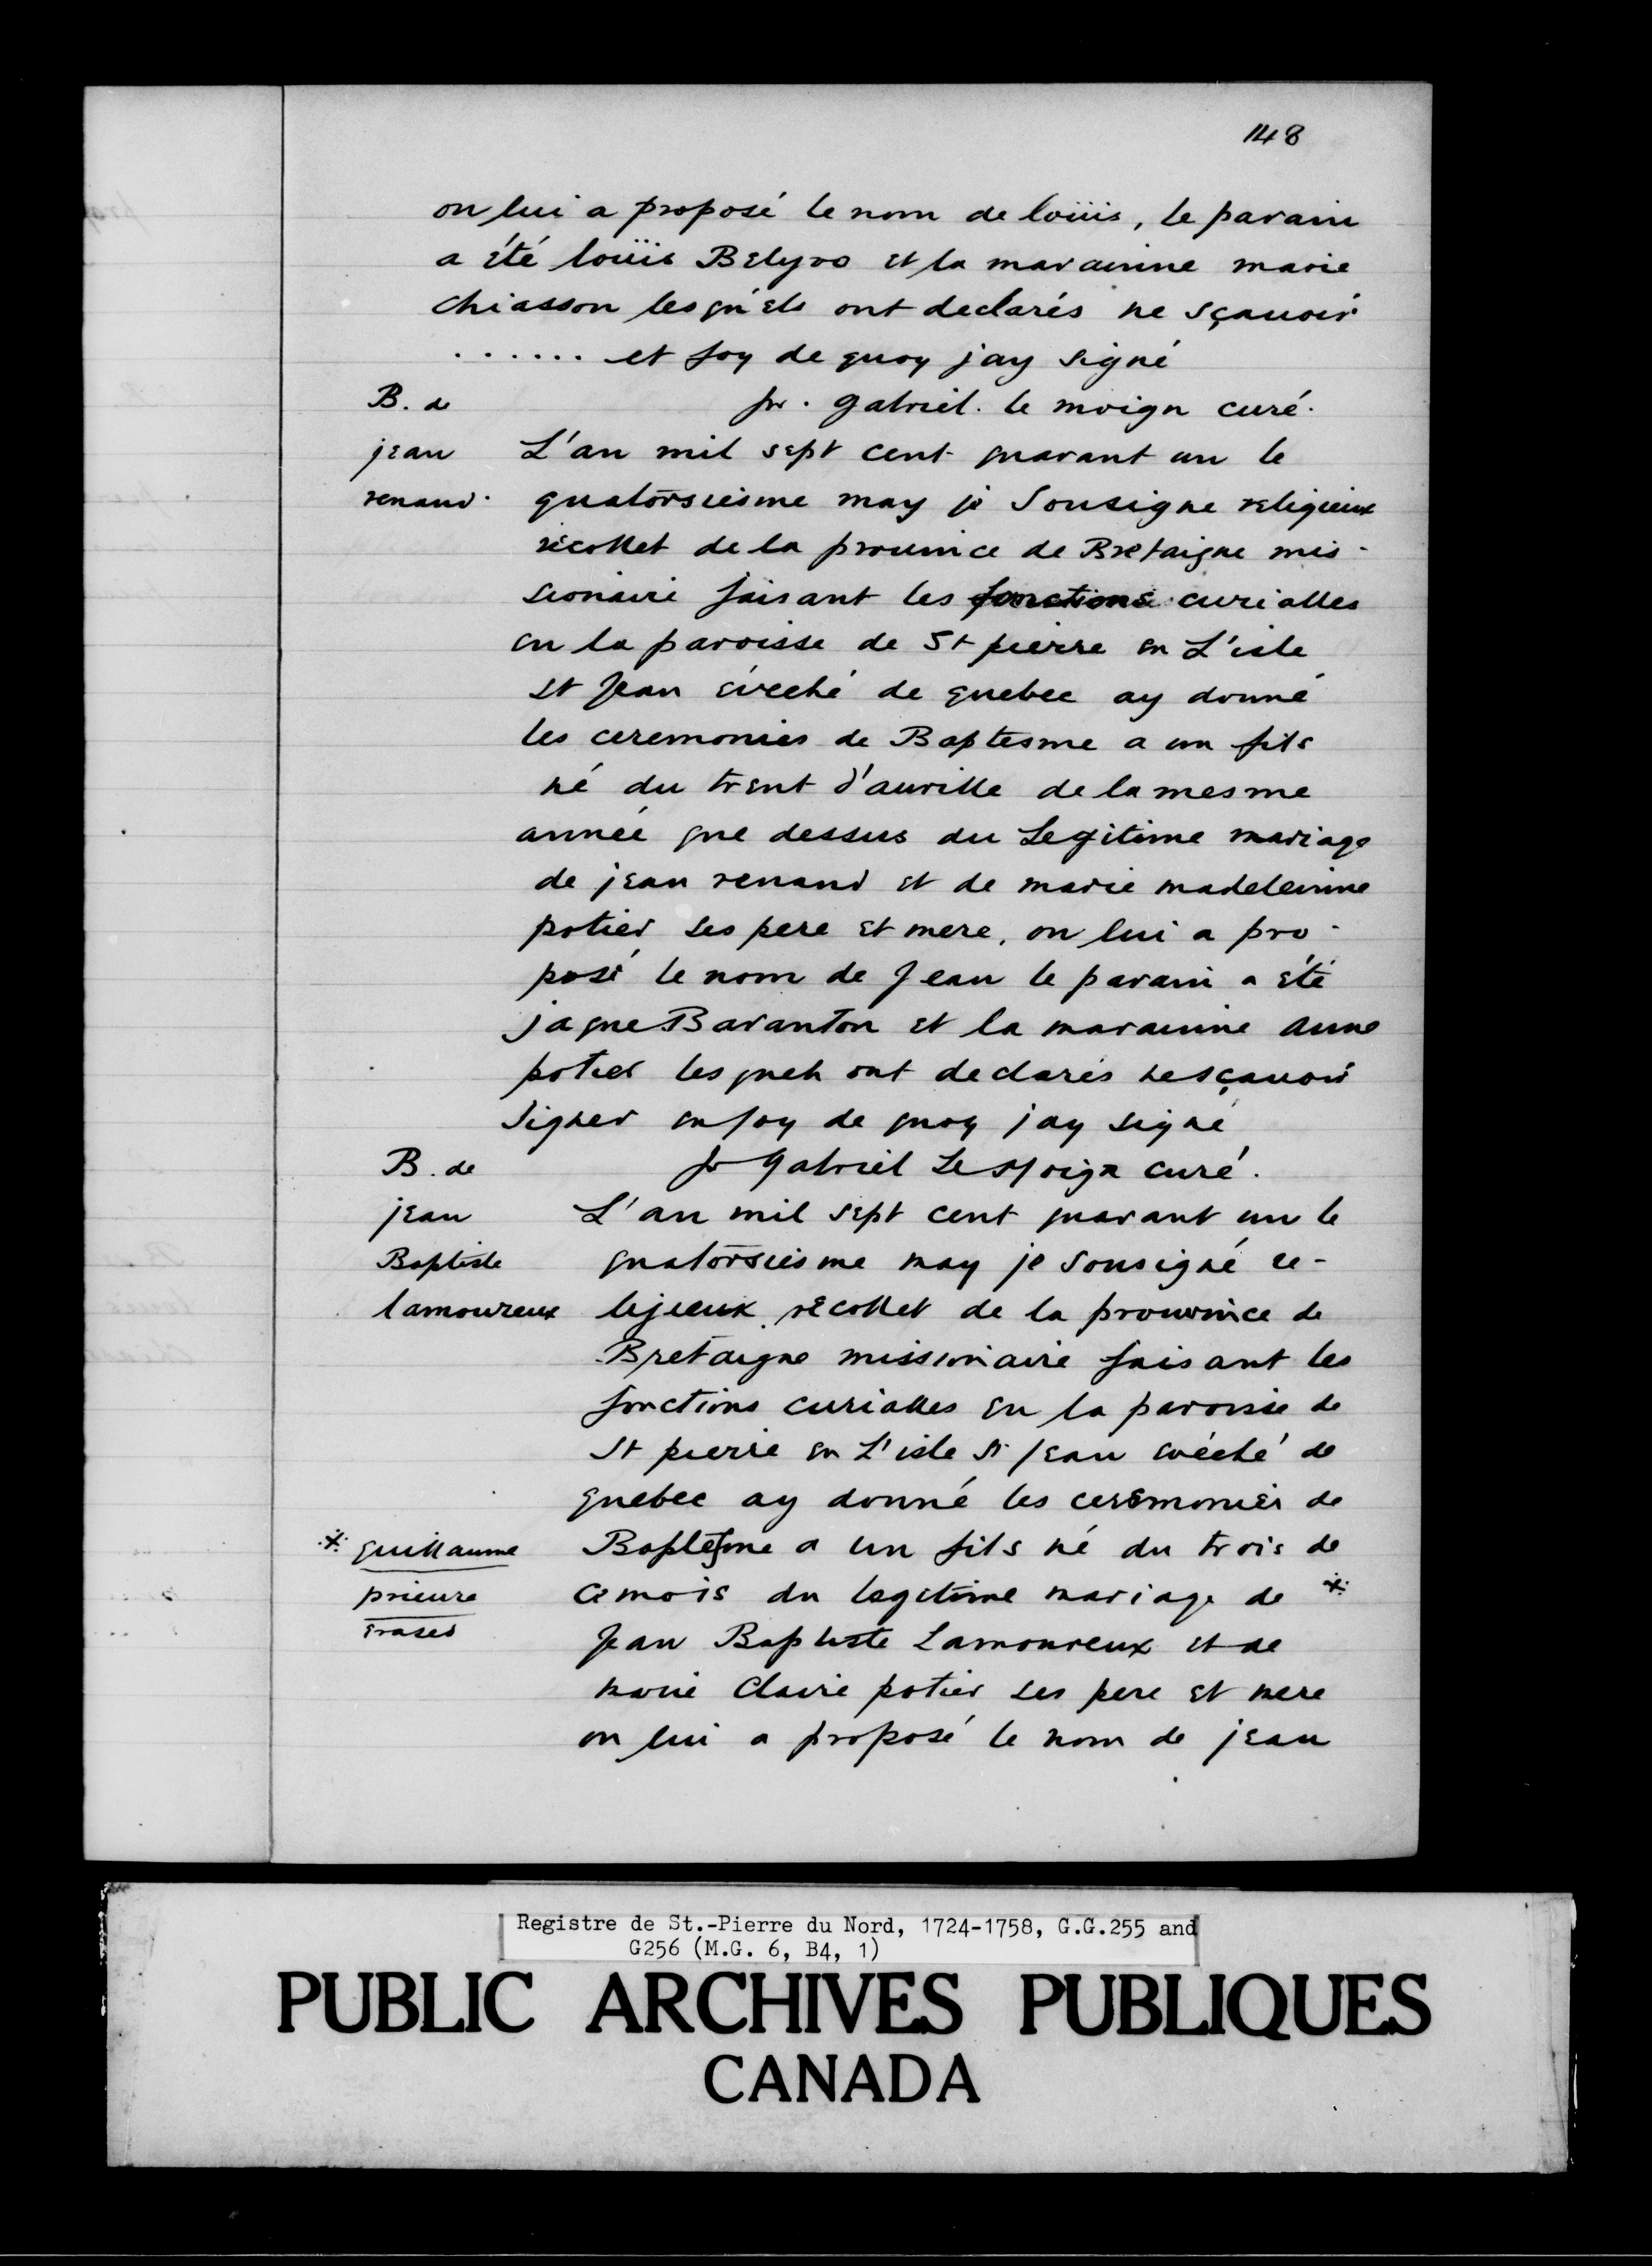 148
on lui a proposé le nom de loüis, le parain
a été loüis Belyvo et la marainne marie
chiasson lesquels ont declarés ne sçauoir
...... et foy de quoy jay signé
fr. gabriel. le moign curé.
B. de
jean
renaud.
L'an mil sept cent quarant un le
quatorsiesme may je Sousigne religieux
récollet de la prouince de Bretaigne mis-
sionaire faisant les fonctions curialles
en la paroisse de St pierre en L'isle
st Jean éveché de quebec ay donné
les ceremonies de Baptesme a un fils
né du trent d'aurille de la mesme
année que dessus du Legitime mariage
de jean renaud et de marie madeleinne
potier ses pere et mere, on lui a pro-
posé le nom de Jean le parain a été
jaque Baranton et la marainne anne
potier lesquels ont declarés ne sçauoir
Signer en foy de quoy jay signé
fr Gabriel Le Moign curé.
B. de
jean
Baptiste
lamoureux
L'an mil sept cent quarant un le
quatorsiesme may je sousigné re-
lejieux récollet de la prouvince de
Bretaigne missionaire faisant les
fonctions curialles en la paroisse de
St pierre en L'isle St Jean evéché de
quebec ay donné les ceremonies de
Baptesme a un fils né du trois de
ce mois du legetime mariage de *
Jean Baptiste Lamoureux et de
marie Claire potier ses pere et mere
on lui a proposé le nom de jean
* guillaume
prieure
erased
Registre de St.-Pierre du Nord, 1724-1758, G.G.255 and
G256 (M.G. 6, B4, 1)
PUBLIC ARCHIVES PUBLIQUES
CANADA